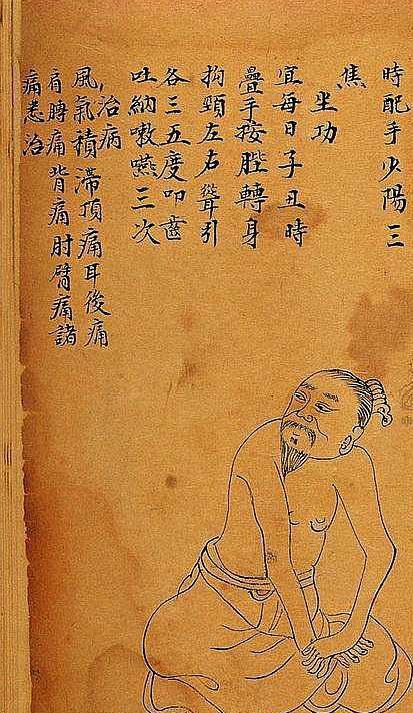 時配手少陽三
焦
坐功
宜每日子丑時
疊手按髀轉身
拗頸左右聳引
各三五度叩齒
吐納嗽嚥三次
治病
風氣積滯頂痛耳後痛
肩膊痛背痛肘臂痛諸
痛悉治